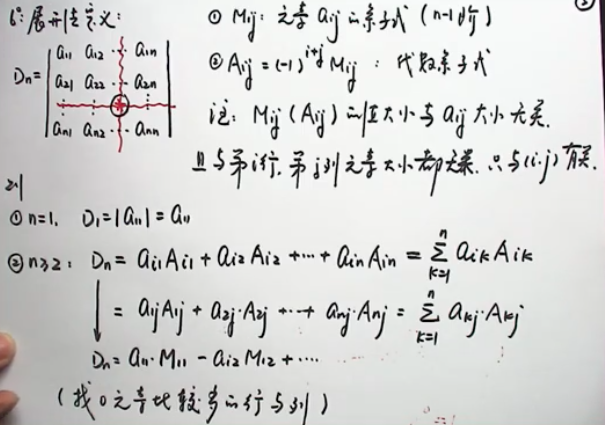 6°: 展开法定义:
Dn = | a11 a12 … a1n |
| a21 a22 … a2n |
| an1 an2 … ann |
① Mij: 元素 aij 的余子式 (n-1阶)
② Aij = (-1)^{i+j} Mij : 代数余子式
注: Mij (Aij) 的值大小与 aij 大小无关.
且与第i行, 第j列元素大小都无关. 只与(i.j)有关.
则
① n=1, D1=|a11|=a11
② n≥2: Dn = ai1Ai1 + ai2Ai2 + ⋯ + ainAin = \sum_{k=1}^{n} aikAik
= a1jA1j + a2j·A2j + ⋯ + anj·Anj = \sum_{k=1}^{n} akj·Akj
Dn = a11·M11 - a12M12 + ⋯
(找0元素比较多的行与列)